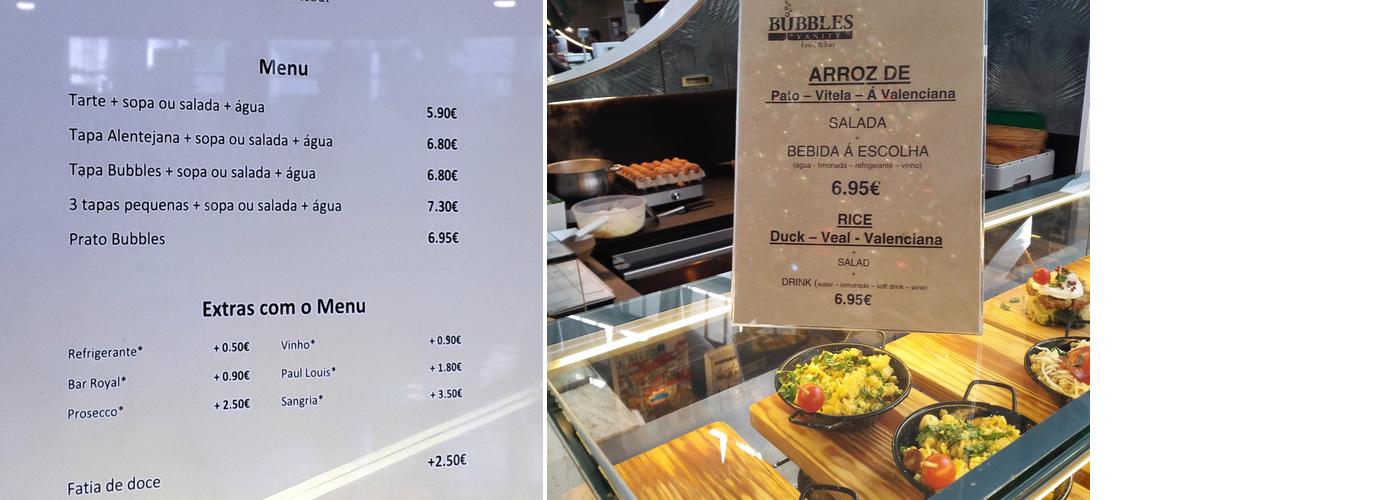 Menu
Tarte + sopa ou salada + água 5.90€
Tapa Alentejana + sopa ou salada + água 6.80€
Tapa Bubbles + sopa ou salada + água 6.80€
3 tapas pequenas + sopa ou salada + água 7.30€
Prato Bubbles 6.95€
Extras com o Menu
Refrigerante* + 0.50€ Vinho* + 0.90€
Bar Royal* + 0.90€ Paul Louis* + 1.80€
Prosecco* + 2.50€ Sangria* + 3.50€
Fatia de doce +2.50€
BUBBLES
VANITY
food&bar
ARROZ DE
Pato – Vitela – Á Valenciana
+
SALADA
+
BEBIDA Á ESCOLHA
(água - limonada – refrigerante – vinho)
6.95€
RICE
Duck – Veal - Valenciana
+
SALAD
+
DRINK (water – lemonade – soft drink – wine)
6.95€